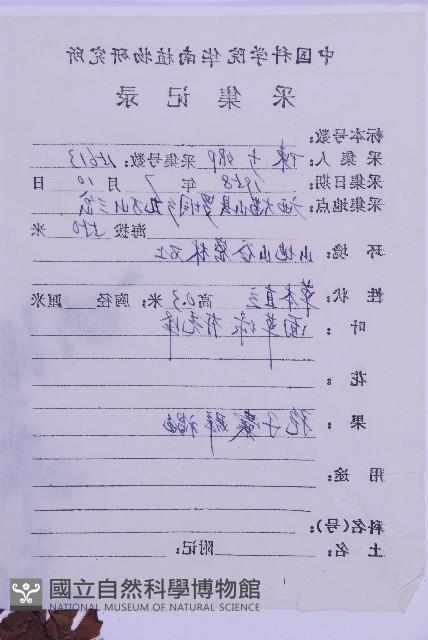 中国科学院华南植物研究所
采集记录
标本号数:
采集人: 陳 采集号数: 15613
采集日期: 1958年7月10日
采集地点:
海拔 550 米
环境: 山地山谷密林
性状: 草本直立 高 0.3 米; 胸径 厘米
叶: 面草绿有光泽
花:
果: 孢子囊群褐色
用途:
科名(号):
土名: 附记:
國立自然科學博物館
NATIONAL MUSEUM OF NATURAL SCIENCE